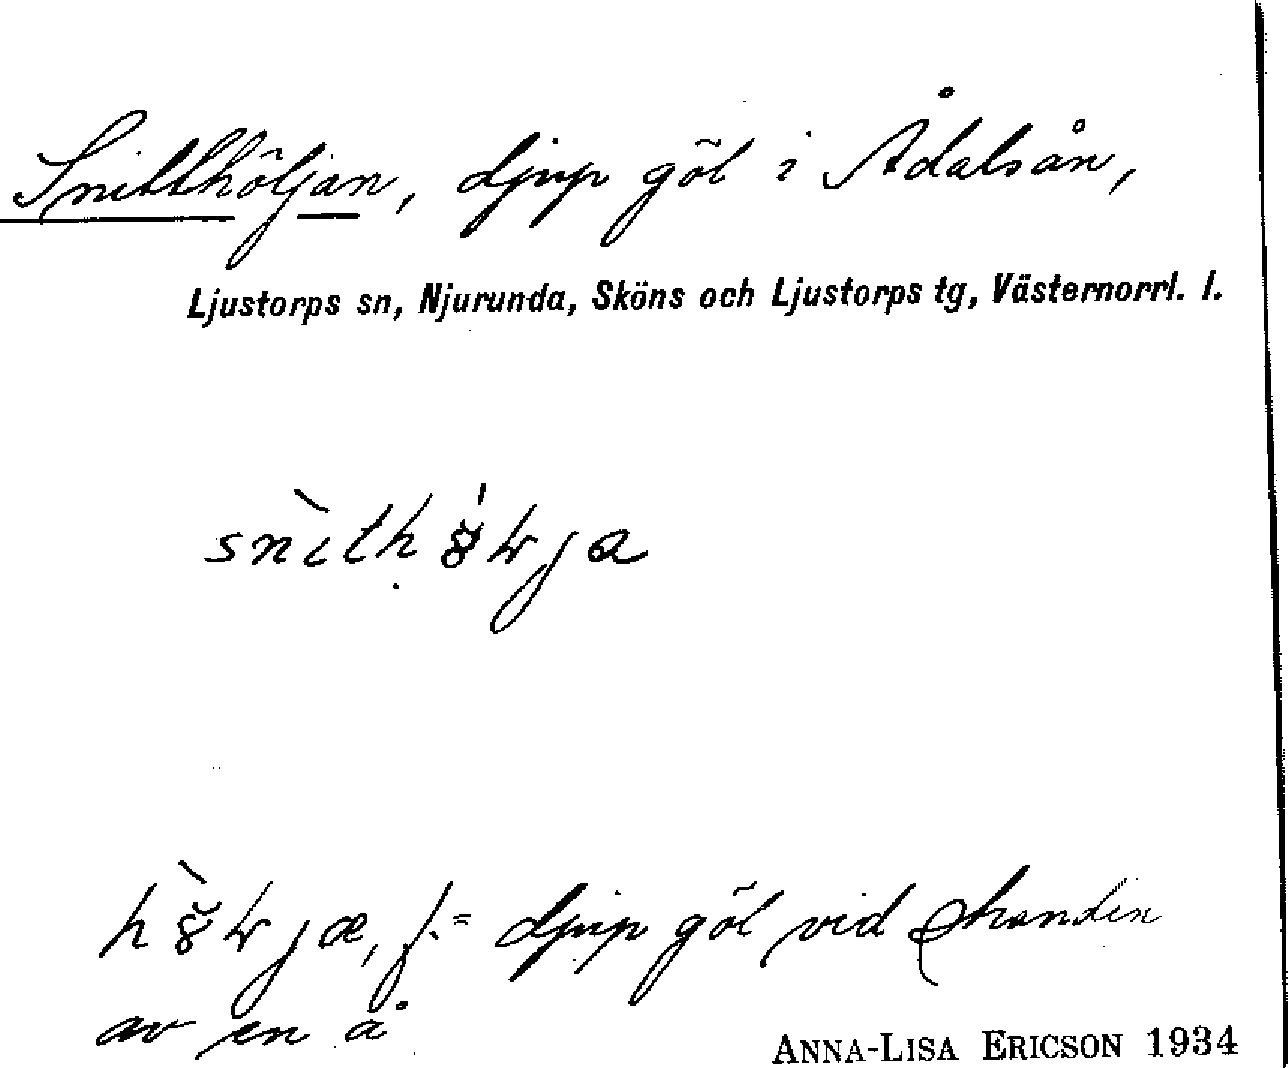 Snitthöljan, djup göl i Ådalsån,
Ljustorps sn, Njurunda, Sköns och Ljustorps tg, Västernorrl. l.
djup göl vid stranden
av en å
ANNA-LISA ERICSON 1934